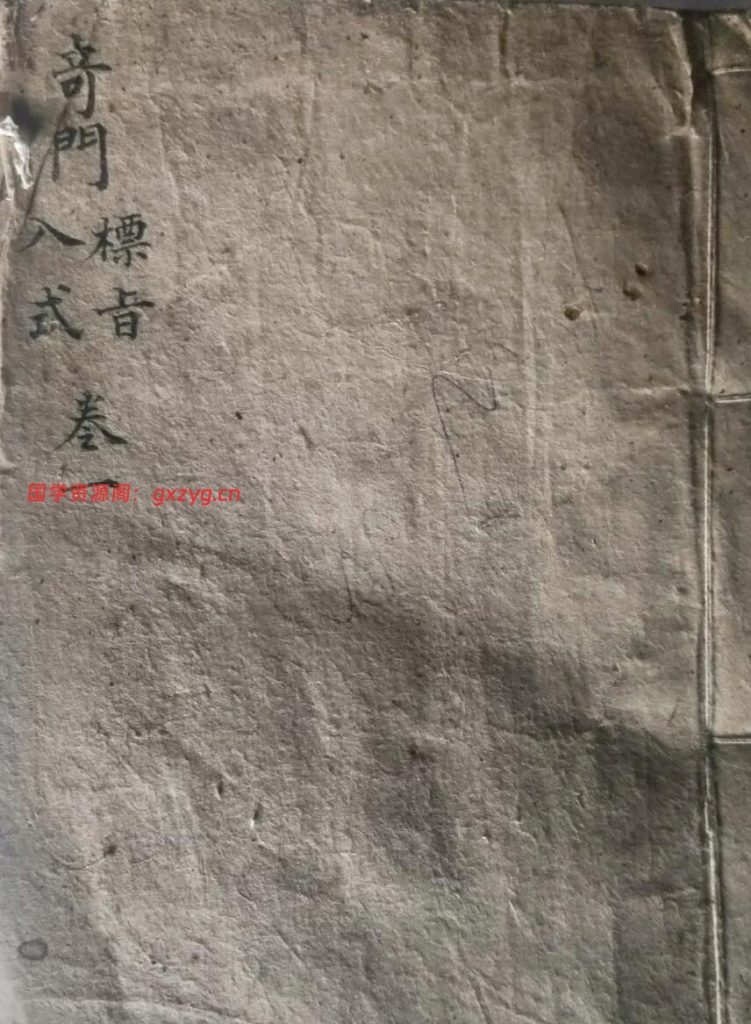 奇門
標旨
入式
卷一
国学资源阁：gxzyg.cn